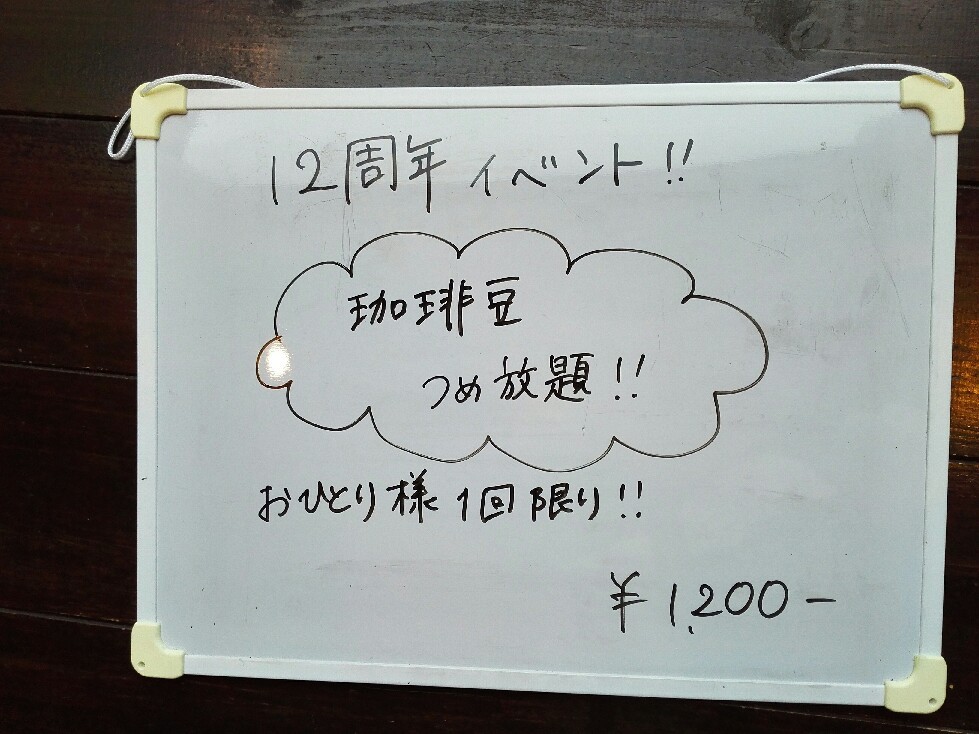 12周年イベント!!
珈琲豆
つめ放題!!
おひとり様1回限り!!
¥1,200-